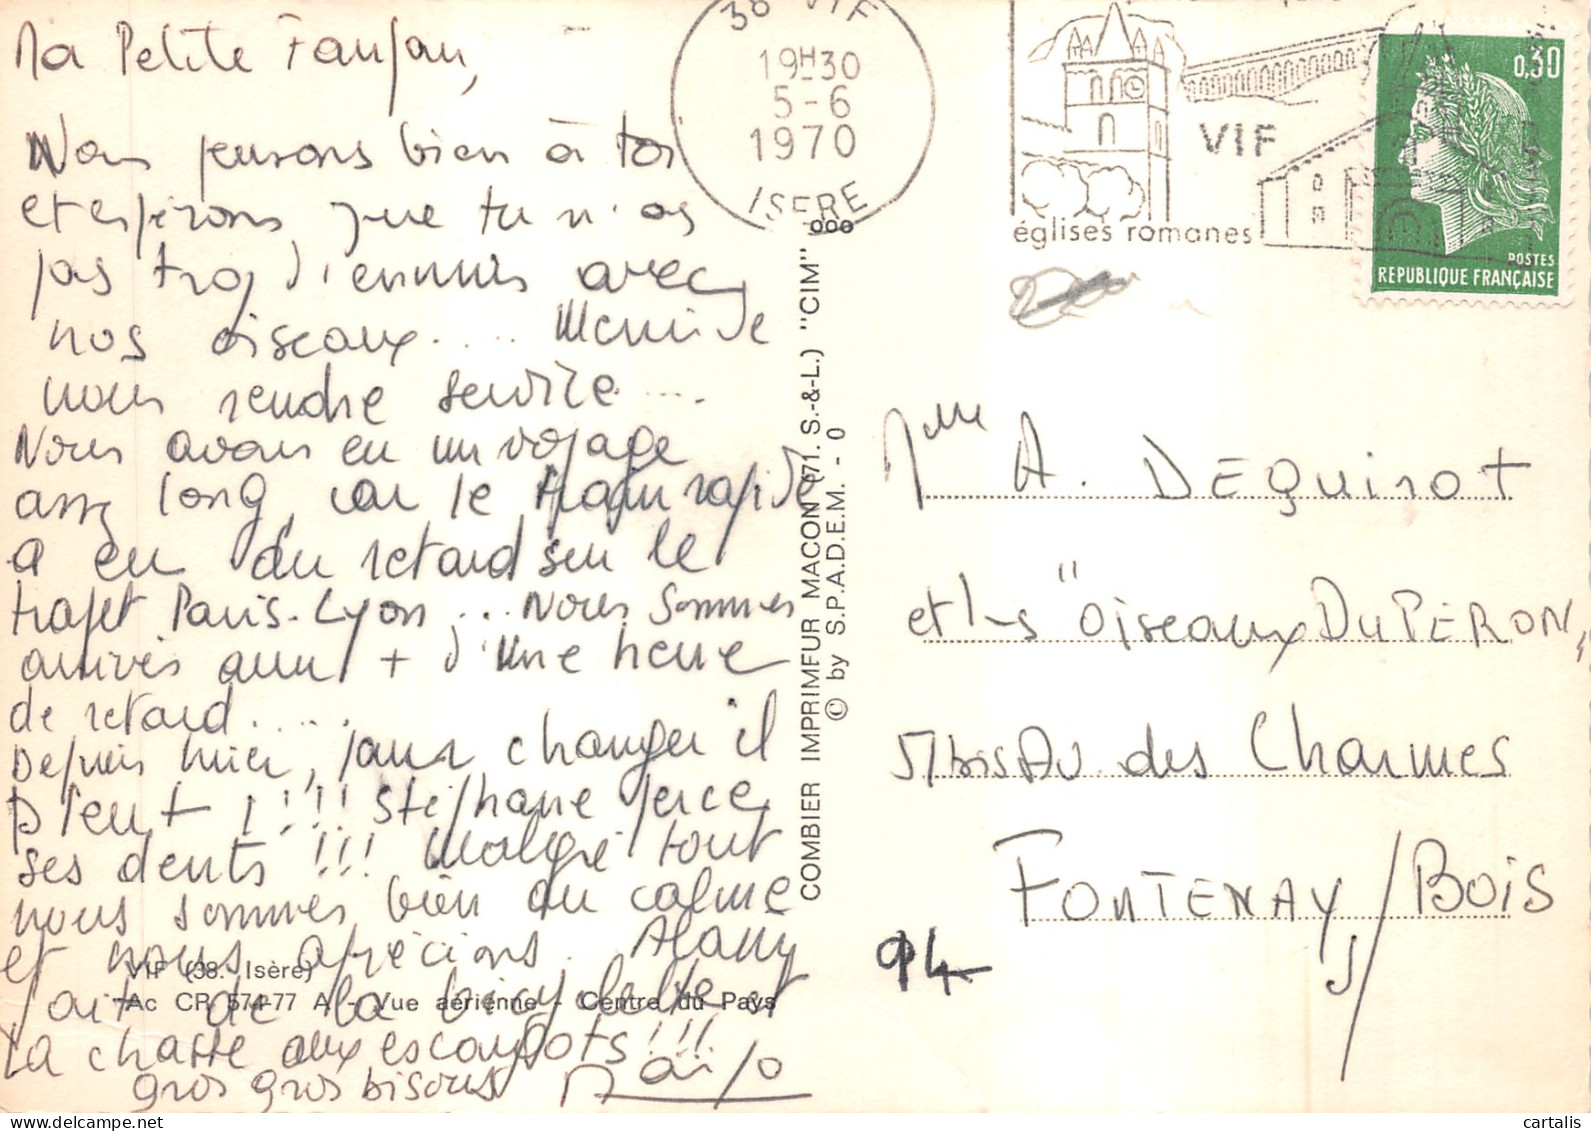 Ma Petite Fanfan,
Nous pensons bien à toi
et espérons que tu n'as
pas trop d'ennuis avec
nos oiseaux....
nous rendre service....
Nous avons eu un voyage
assez long car le train rapide
a eu du retard sur le
trajet Paris-Lyon... Nous sommes
arrivés avec + d'une heure
de retard.....
Depuis hier, pour changer il
pleut !!!! Stéphane perce
ses dents !!! Malgré tout
nous sommes bien au calme
et nous apprécions. Alany
fait de la bicyclette et
la chasse aux escargots !!!
gros gros bisous
VIF (38. Isère)
Ac CP 574-77 A - Vue aérienne - Centre du Pays
COMBIER IMPRIMEUR MACON (71. S.-&-L.) "CIM"
© by S.P.A.D.E.M. - 0
38 VIF
19H30
5-6
1970
ISERE
000
VIF
églises romanes
0,30
POSTES
REPUBLIQUE FRANÇAISE
Mme A. DEguirot
et l-s "oiseaux DUPERON"
51 bis Av. des Charmes
FONTENAY s/ BOIS
94
cartalis